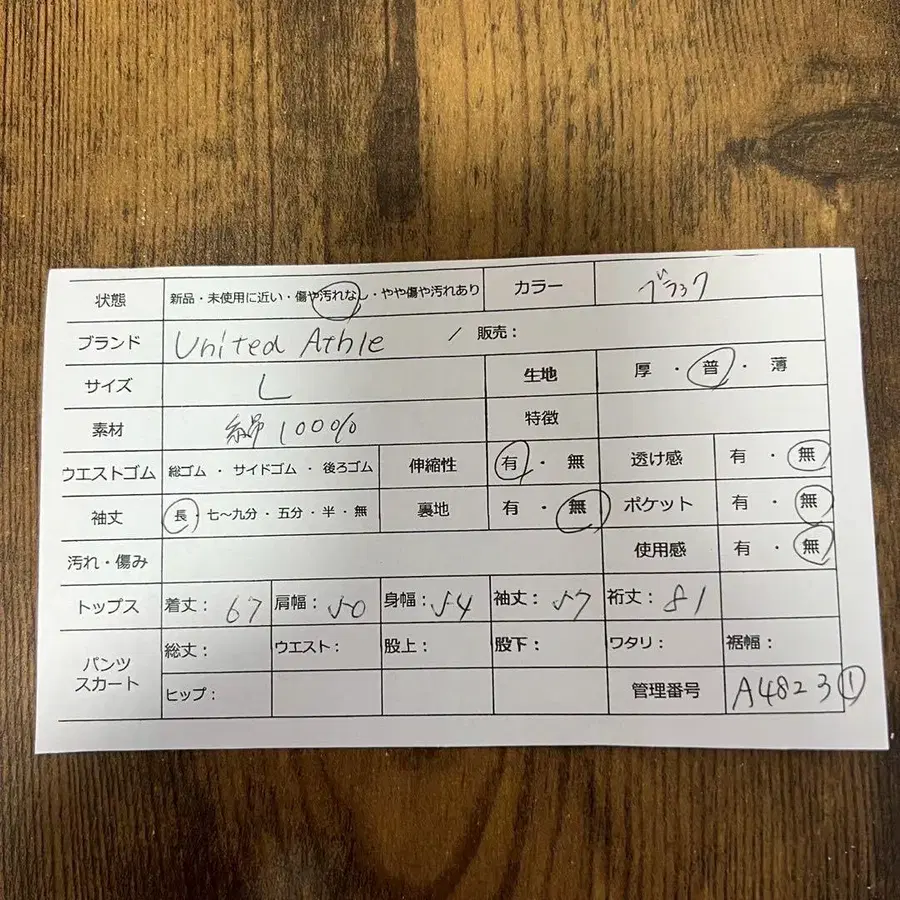 状態 新品・未使用に近い・傷や汚れなし・やや傷や汚れあり カラー ブラック
ブランド United Athle / 販売：
サイズ L 生地 厚 ・ 普 ・ 薄
素材 綿100% 特徴
ウエストゴム 総ゴム ・ サイドゴム ・ 後ろゴム 伸縮性 有 ・ 無 透け感 有 ・ 無
袖丈 長 ・ 七〜九分 ・ 五分 ・ 半 ・ 無 裏地 有 ・ 無 ポケット 有 ・ 無
汚れ・傷み 使用感 有 ・ 無
トップス 着丈： 67 肩幅： 50 身幅： 54 袖丈： 57 裄丈： 81
パンツ スカート 総丈： ウエスト： 股上： 股下： ワタリ： 裾幅：
ヒップ： 管理番号 A4823①